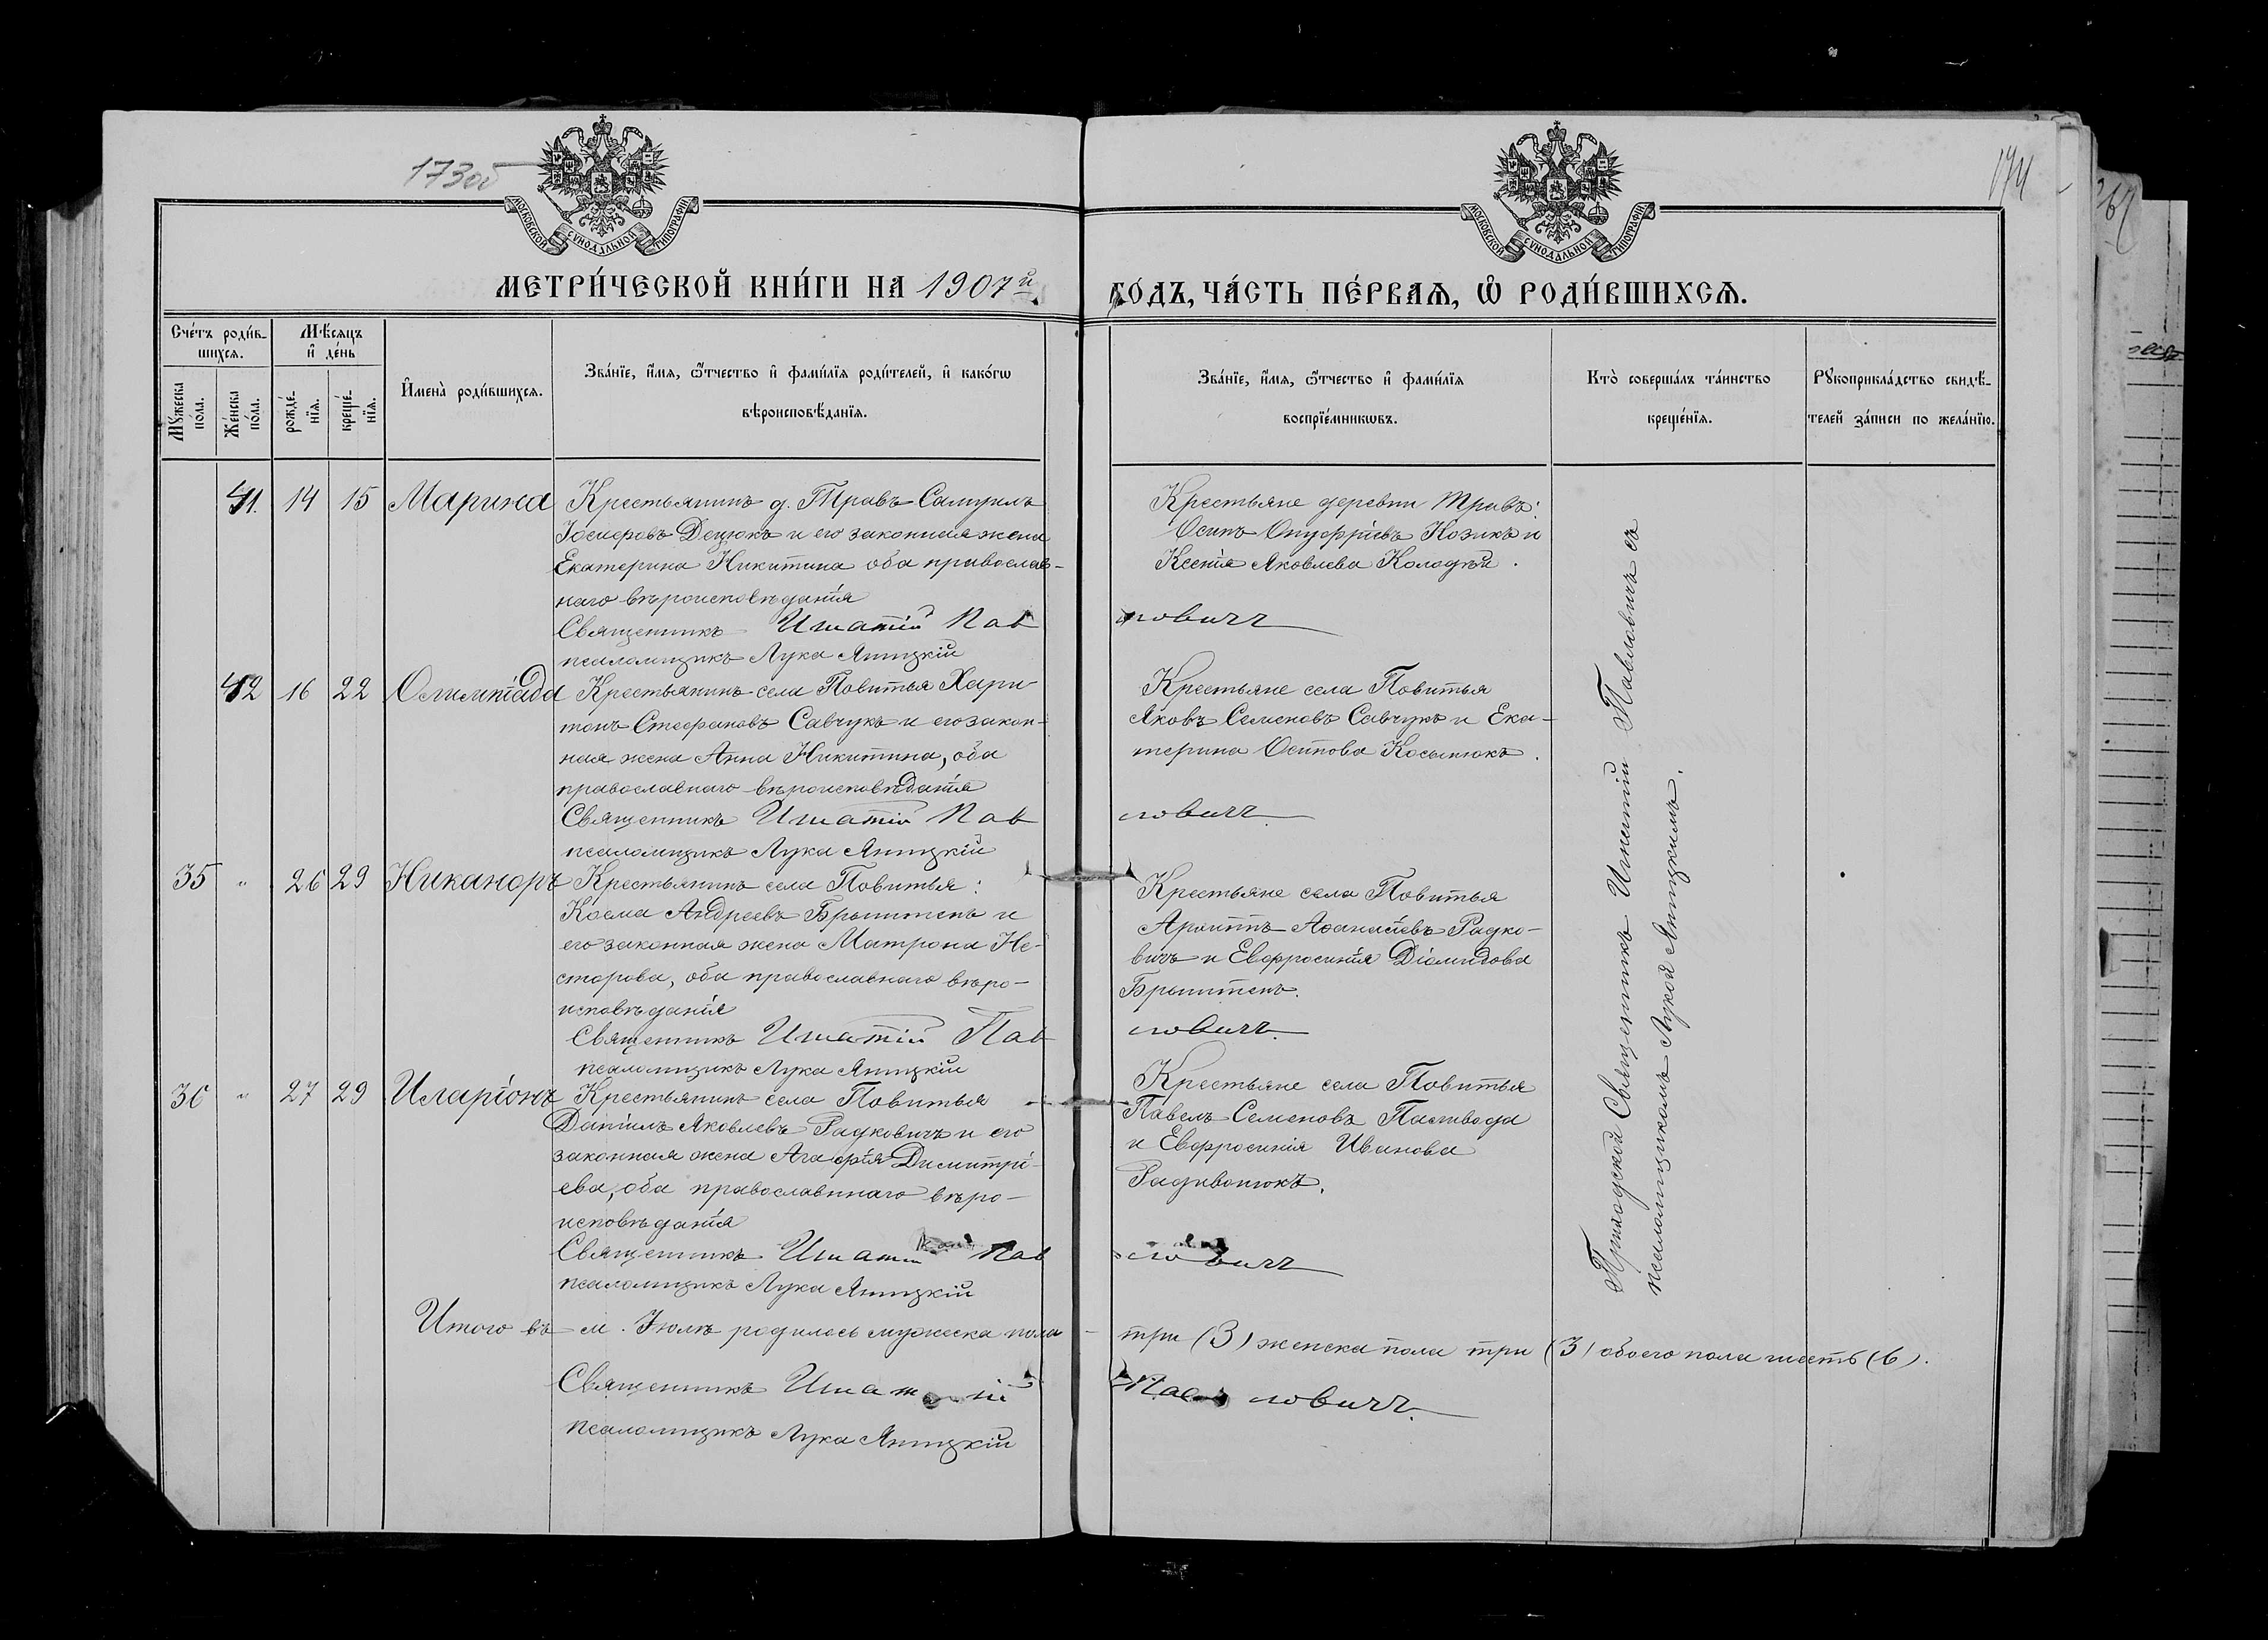 173об
174
МОСКОВСКОЙ СѴНОДАЛЬНОЙ ТИПОГРАФІИ
МОСКОВСКОЙ СѴНОДАЛЬНОЙ ТИПОГРАФІИ
МЕТРИ́ЧЕСКОЙ КНИ́ГИ НА 1907й
ГО́ДЪ, ЧА́СТЬ ПЕ́РВАѦ, Ѡ҆ РОДИ́ВШИХСѦ.
Сче́тъ роди́в-
шихся.
Мѣ́сяцъ
и҆ де́нь
Мꙋ́жеска
по́ла.
Же́нска
по́ла.
рожде́-
нїя.
креще́-
нїя.
И҆мена̀ роди́вшихся.
Зва́нїе, и҆́мя, ѻ҆́тчество и҆ фами́лїя роди́телей, и҆ како́гѡ
вѣроисповѣ́данїя.
Зва́нїе, и҆́мя, ѻ҆́тчество и҆ фами́лїя
воспрїе́мникѡвъ.
Кто̀ соверша́лъ та́инство
креще́нїя.
Рꙋкоприкла́дство свидѣ́-
телей за́писи по жела́нїю.
41. 14 15 Марина Крестьянинъ д. Травъ Самуилъ
Іосифовъ Децюкъ и его законная жена
Екатерина Никитина оба православ-
наго вѣроисповѣданія
Священникъ Игнатій Пав
псаломщикъ Лука Яницкій
Крестьяне деревни Травъ:
Осипъ Онуфріевъ Козикъ и
Ксенія Яковлева Колодѣй.
ловичъ
42 16 22 Олимпіада Крестьянинъ села Повитья Хари-
тонъ Стефановъ Савчукъ и его закон-
ная жена Анна Никитина, оба
православнаго вѣроисповѣданія
Священникъ Игнатій Пав
псаломщикъ Лука Яницкій
Крестьяне села Повитья
Яковъ Семеновъ Савчукъ и Ека-
терина Осипова Косынюкъ.
ловичъ
35 " 26 29 Никаноръ Крестьянинъ села Повитья:
Косма Андреевъ Брынтень и
его законная жена Матрона Не-
сторова, оба православнаго вѣро-
исповѣданія
Священникъ Игнатій Пав
псаломщикъ Лука Яницкій
Крестьяне села Повитья
Архиппъ Аѳанасіевъ Радко-
вичъ и Евфросинія Діомидова
Брынтень.
ловичъ
36 " 27 29 Иларіонъ Крестьянинъ села Повитья
Даніилъ Яковлевъ Радковичъ и его
законная жена Агафія Димитрі-
ева, оба православннаго вѣро-
исповѣданія
Священникъ Игнатій Пав
псаломщикъ Лука Яницкій
Крестьяне села Повитья
Павелъ Семеновъ Пастивода
и Евфросинія Иванова
Радивонюкъ.
ловичъ
Приходскій Священникъ Игнатій Павловичъ съ
псаломщикомъ Лукой Яницкимъ.
Итого въ м. Іюлѣ родилось мужеска пола
три (3) женска пола три (3) обоего пола шесть (6).
Священникъ Игнатій
Павловичъ
псаломщикъ Лука Яницкій